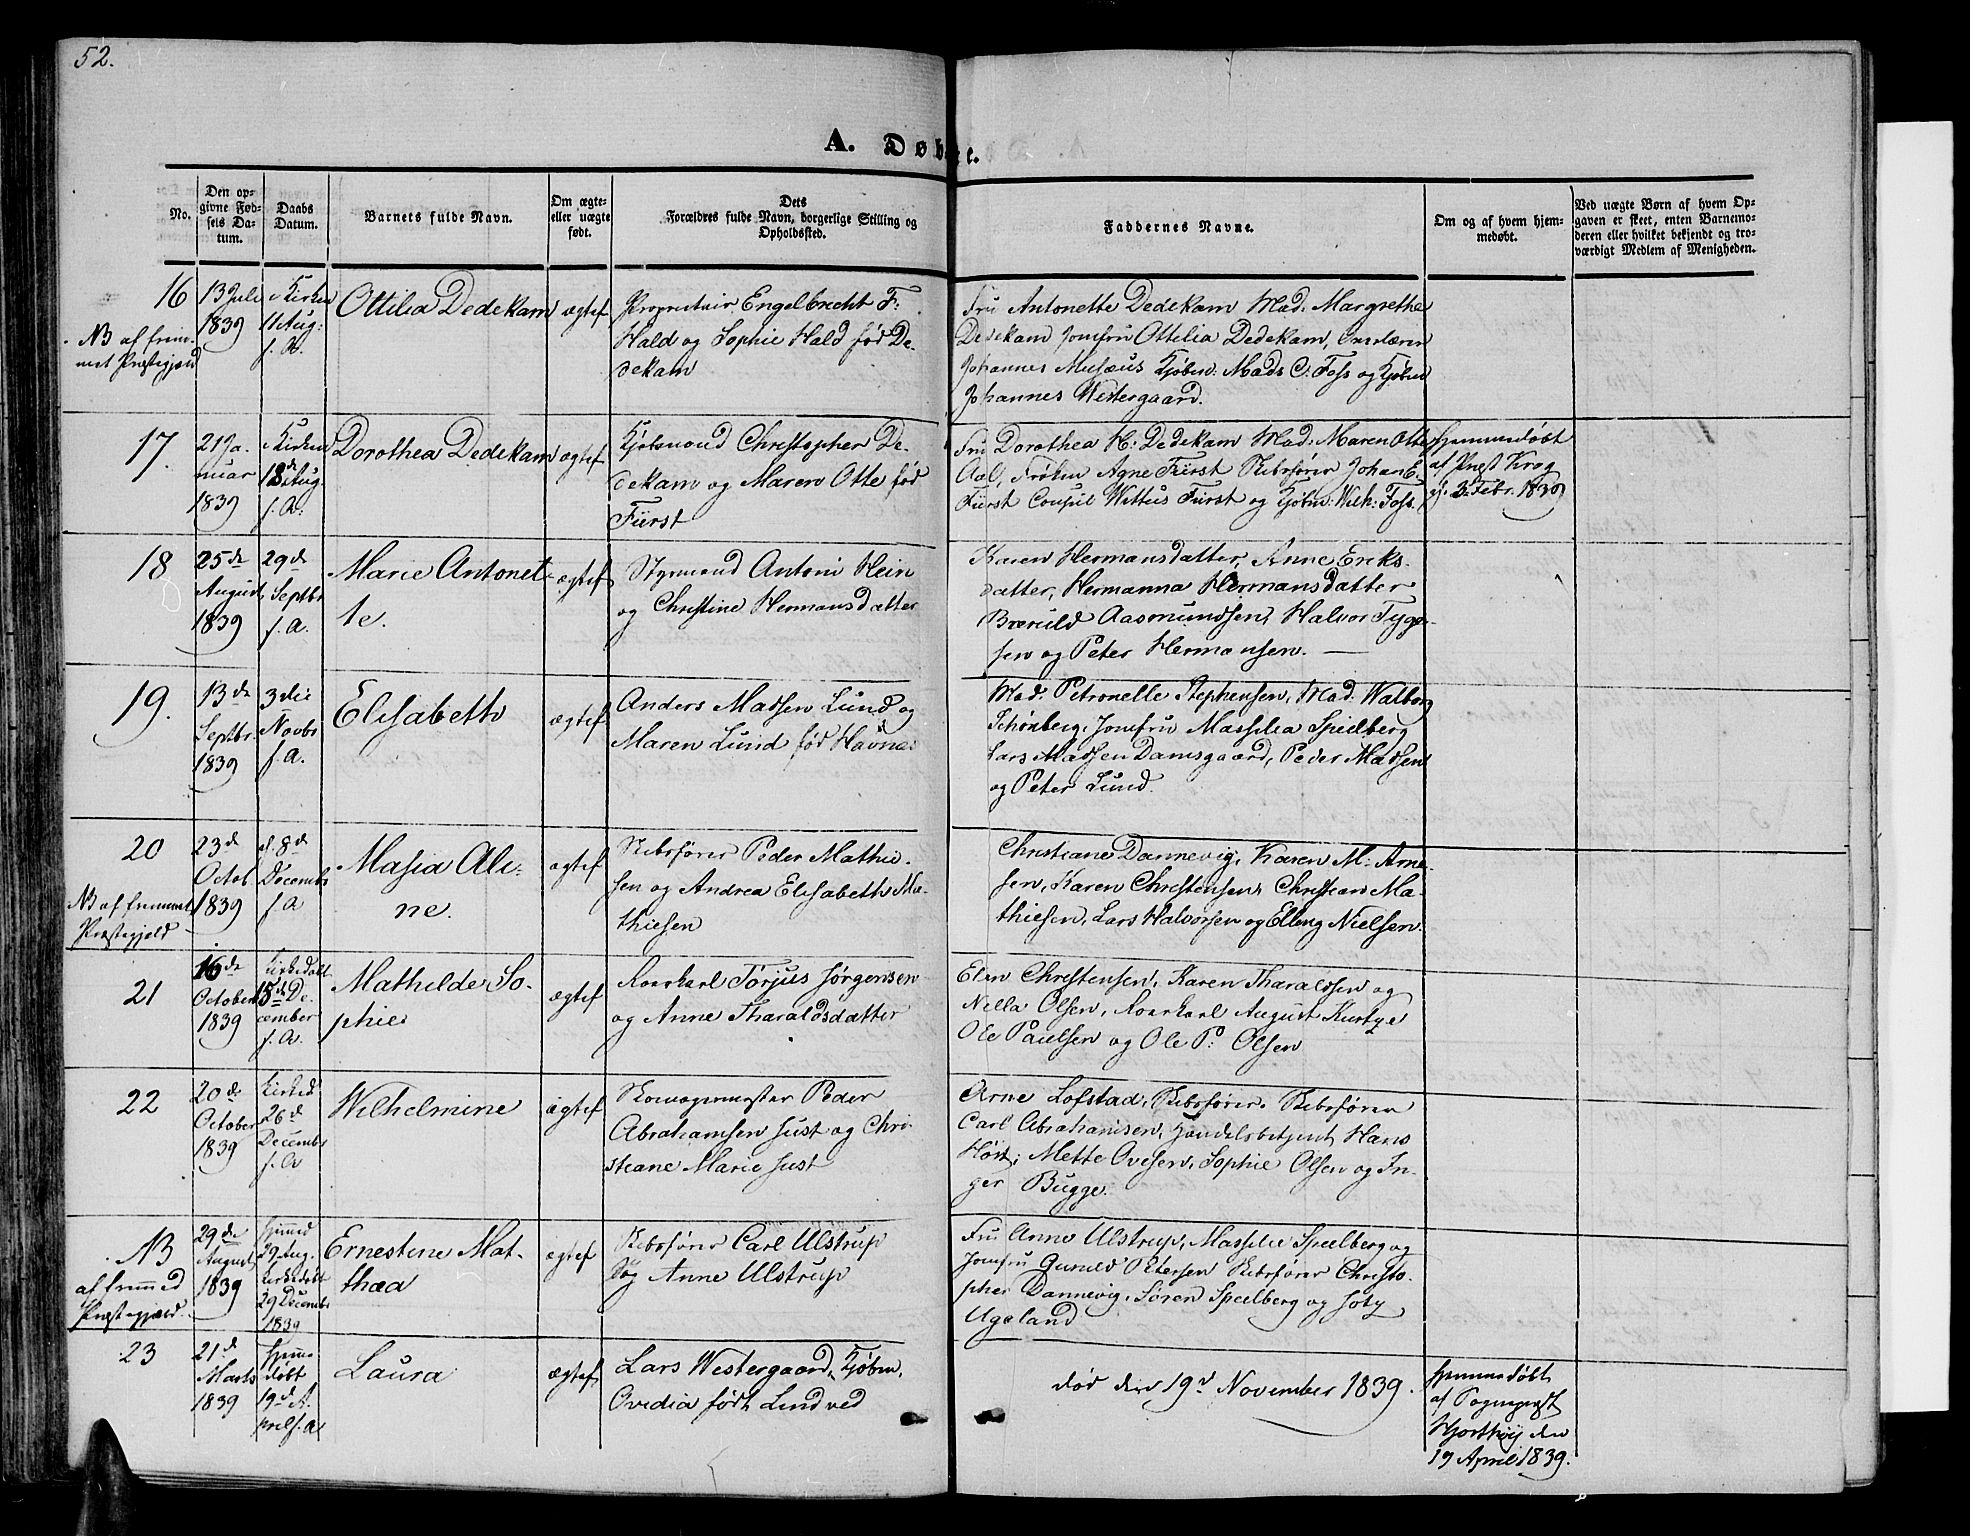 52.
A. Døbte.
No.
Den op-
givne Fød-
sels Da-
tum.
Daabs
Datum.
Barnets fulde Navn.
Om ægte
eller uægte
født.
Dets
Forældres fulde Navn, borgerlige Stilling og
Opholdssted.
Faddernes Navne.
Om og af hvem hjem-
medøbt.
Ved uægte Børn af hvem Op-
gaven er skeet, enten Barnemo-
deren eller hvilket bekjendt og tro-
værdigt Medlem af Menigheden.
16
NB af frem-
met Præstegjæld
13 Juli
1839
i Kirken
11 Aug:
f. A.
Ottilia Dedekam
ægtef
Proprietair Engelbrecht F:
Hald og Sophie Hald fød De-
dekam
Fru Antonette Dedekam Mad. Margrethe
Dedekam Jomfru Ottilia Dedekam,
Johannes Musæus Kjøbm: Mads C. Foss og Kjøbm
Johannes Westergaard.
17.
21 Ja-
nuar
1839
i Kirken
18de Aug.
f. A.
Dorothea Dedekam
ægtef
Kjøbmand Christopher De-
dekam og Maren Otte fød
Fürst
Fru Dorothea H. Dedekam Mad. Maren Otte
Aal, Frøken Agne Fürst Skibsfører Johan E.
Fürst Consul Wittus Fürst og Kjøbm: Wilh: Foss.
Hjemmedøbt
af Præst Krog
d. 3. Febr. 1839
18
25de
August
1839
29de
Septbr
f. A.
Marie Antonet-
te.
ægtef
Styrmand Antoni Hein
og Christine Hermansdatter
Karen Hermansdatter, Anne Eriks-
datter, Hermanna Hermansdatter
Aasmundsen, Halvor Tyge-
sen og Peter Hermansen.
19.
13de
Septbr.
1839
3die
Novbr
f. A.
Elisabeth
ægtef
Anders Madsen Lund og
Maren Lund fød Havnes
Mad. Petronelle Stephensen, Mad. Walborg
Schönberg, Jomfru Massilia Spielberg
Lars Madsen Damsgaard, Peder Madsen
og Peter Lund.
20
NB af fremmet
Præstegjeld
23de
Octob.
1839
d. 8de
Decembr
f. A
Masia Ali-
ne.
ægtef
Skibsfører Peder Mathie-
sen og Andrea Elisabeth Ma-
thiesen
Christiane Dannevig, Karen M. Arne-
sen, Karen Christensen, Christian Ma-
thiesen, Lars Halvorsen og Elling Nielsen.
21
16de
October
1839
Kirkedøbt
15de De-
cember
f. A.
Mathilde So-
phie
ægtef
Roerkarl Torjus Jørgensen
og Anne Tharaldsdatter
Elen Christensen, Karen Tharaldsen og
Nella Olsen, Roerkarl August
Ole Paulsen og Ole P. Olsen
22
20de
October
1839
Kirked
26de
Decembr
f. A
Wilhelmine
ægtef
Skomagermester Peder
Abrahamsen Just og Chri-
stiane Marie Just
Arne Lofstad, Skibsfører. Skibsfører
Carl Abrahamsen, Handelsbetjent Hans
Mette Ovesen, Sophie Olsen og In-
ger Bugge.
NB
af fremed
Præstegjæld
29de
August
1839
Hjemmed
29 Aug.
Kirkedøbt
29 Decembr
1839
Ernestine Mat-
thea
ægtef
Skibsfører Carl Ulstrup
og Anne Ulstrup
Fru Anne Ulstrup, Massilie Spielberg og
Jomfru Gunild Petersen Skibsfører Christo-
pher Dannevig, Søren Spielberg og
Ugeland
23
21de
Marts
1839
Hjemme
døbt
19de A-
pril f. A
Laura
ægtef
Lars Westergaard, Kjøbm.
Ovidia født Lindved
død den 19de November 1839.
Hjemmedøbt
af Sognepræst
Hjorthøy den
19 April 1839.